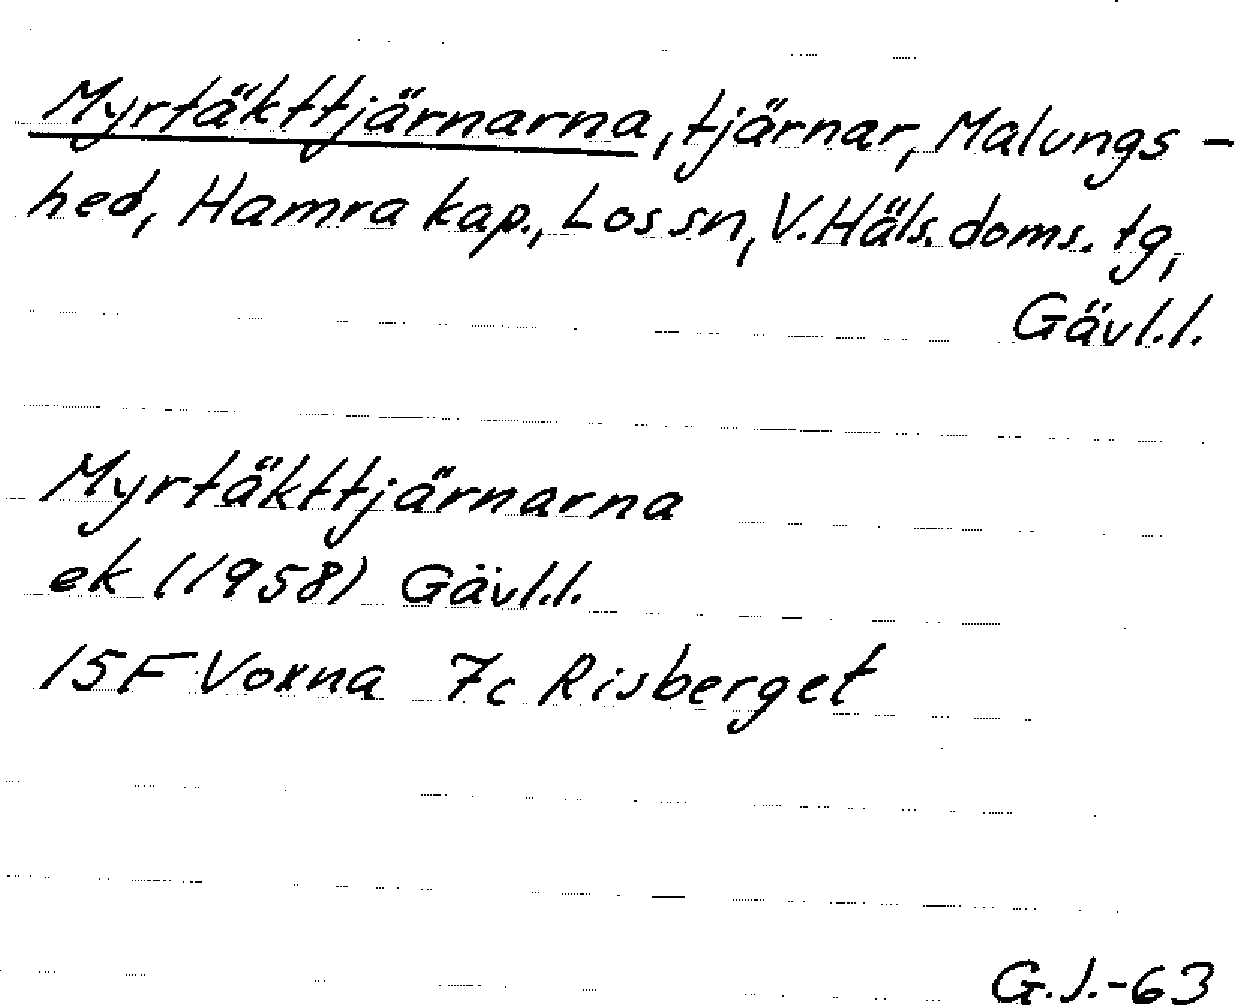 Myrtäkttjärnarna, tjärnar, Malungs-
hed, Hamra kap., Los sn, V. Häls. doms. tg,
Gävl.l.
Myrtäkttjärnarna
ek (1958) Gävl.l.
15F Voxna 7c Risberget
G.J.-63